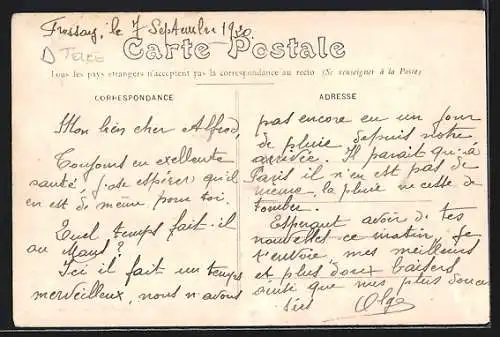 Frossay, le 7 Septembre 1930.
Carte Postale
Tous les pays étrangers n'acceptent pas la correspondance au recto (Se renseigner à la Poste)
CORRESPONDANCE
Mon bien cher Alfred,
Toujours en excellente
santé, j'ose espérer qu'il
en est de même pour toi.
Quel temps fait-il
au Mans?
Ici il fait un temps
merveilleux, nous n'avons
ADRESSE
pas encore eu un jour
de pluie depuis notre
arrivée. Il parait qu'à
Paris il n'en est pas de
même, la pluie ne cesse de
tomber.
Espérant avoir de tes
nouvelles ce matin, je
t'envoie mes meilleurs
et plus doux baisers
ainsi que mes plus douces
Olga